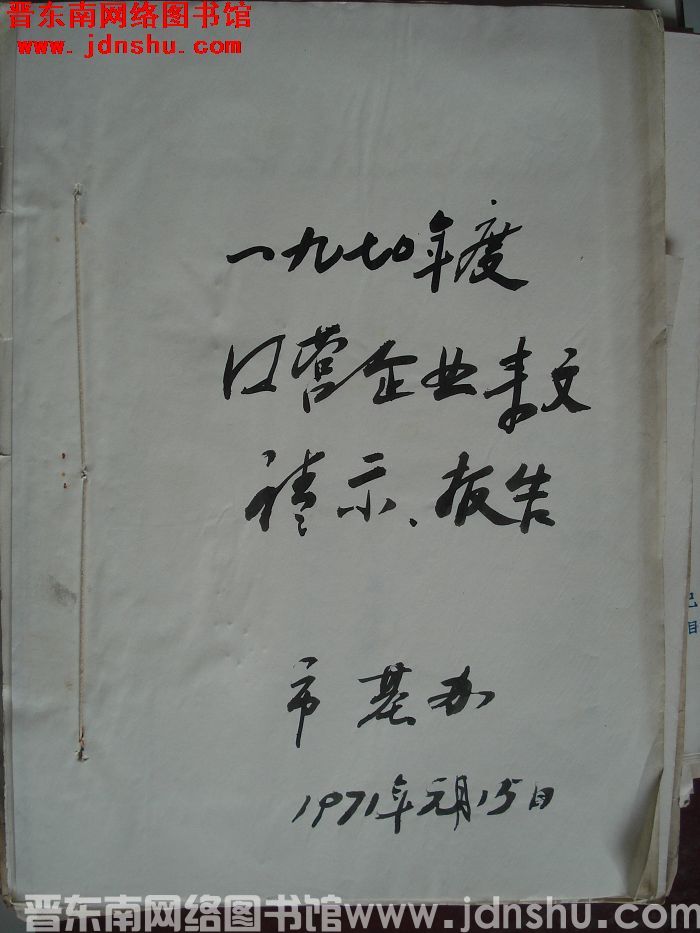 晋东南网络图书馆
www.jdnshu.com
一九七〇年度
营企业来文
请示、报告
市基办
1971年元月15日
晋东南网络图书馆www.jdnshu.com